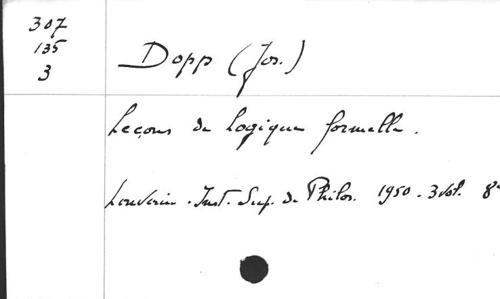 307
135
3
Dopp (Jos.)
Leçons de logique formelle.
Louvain. Inst. Sup. de Philos. 1950. 3 vol. 8°